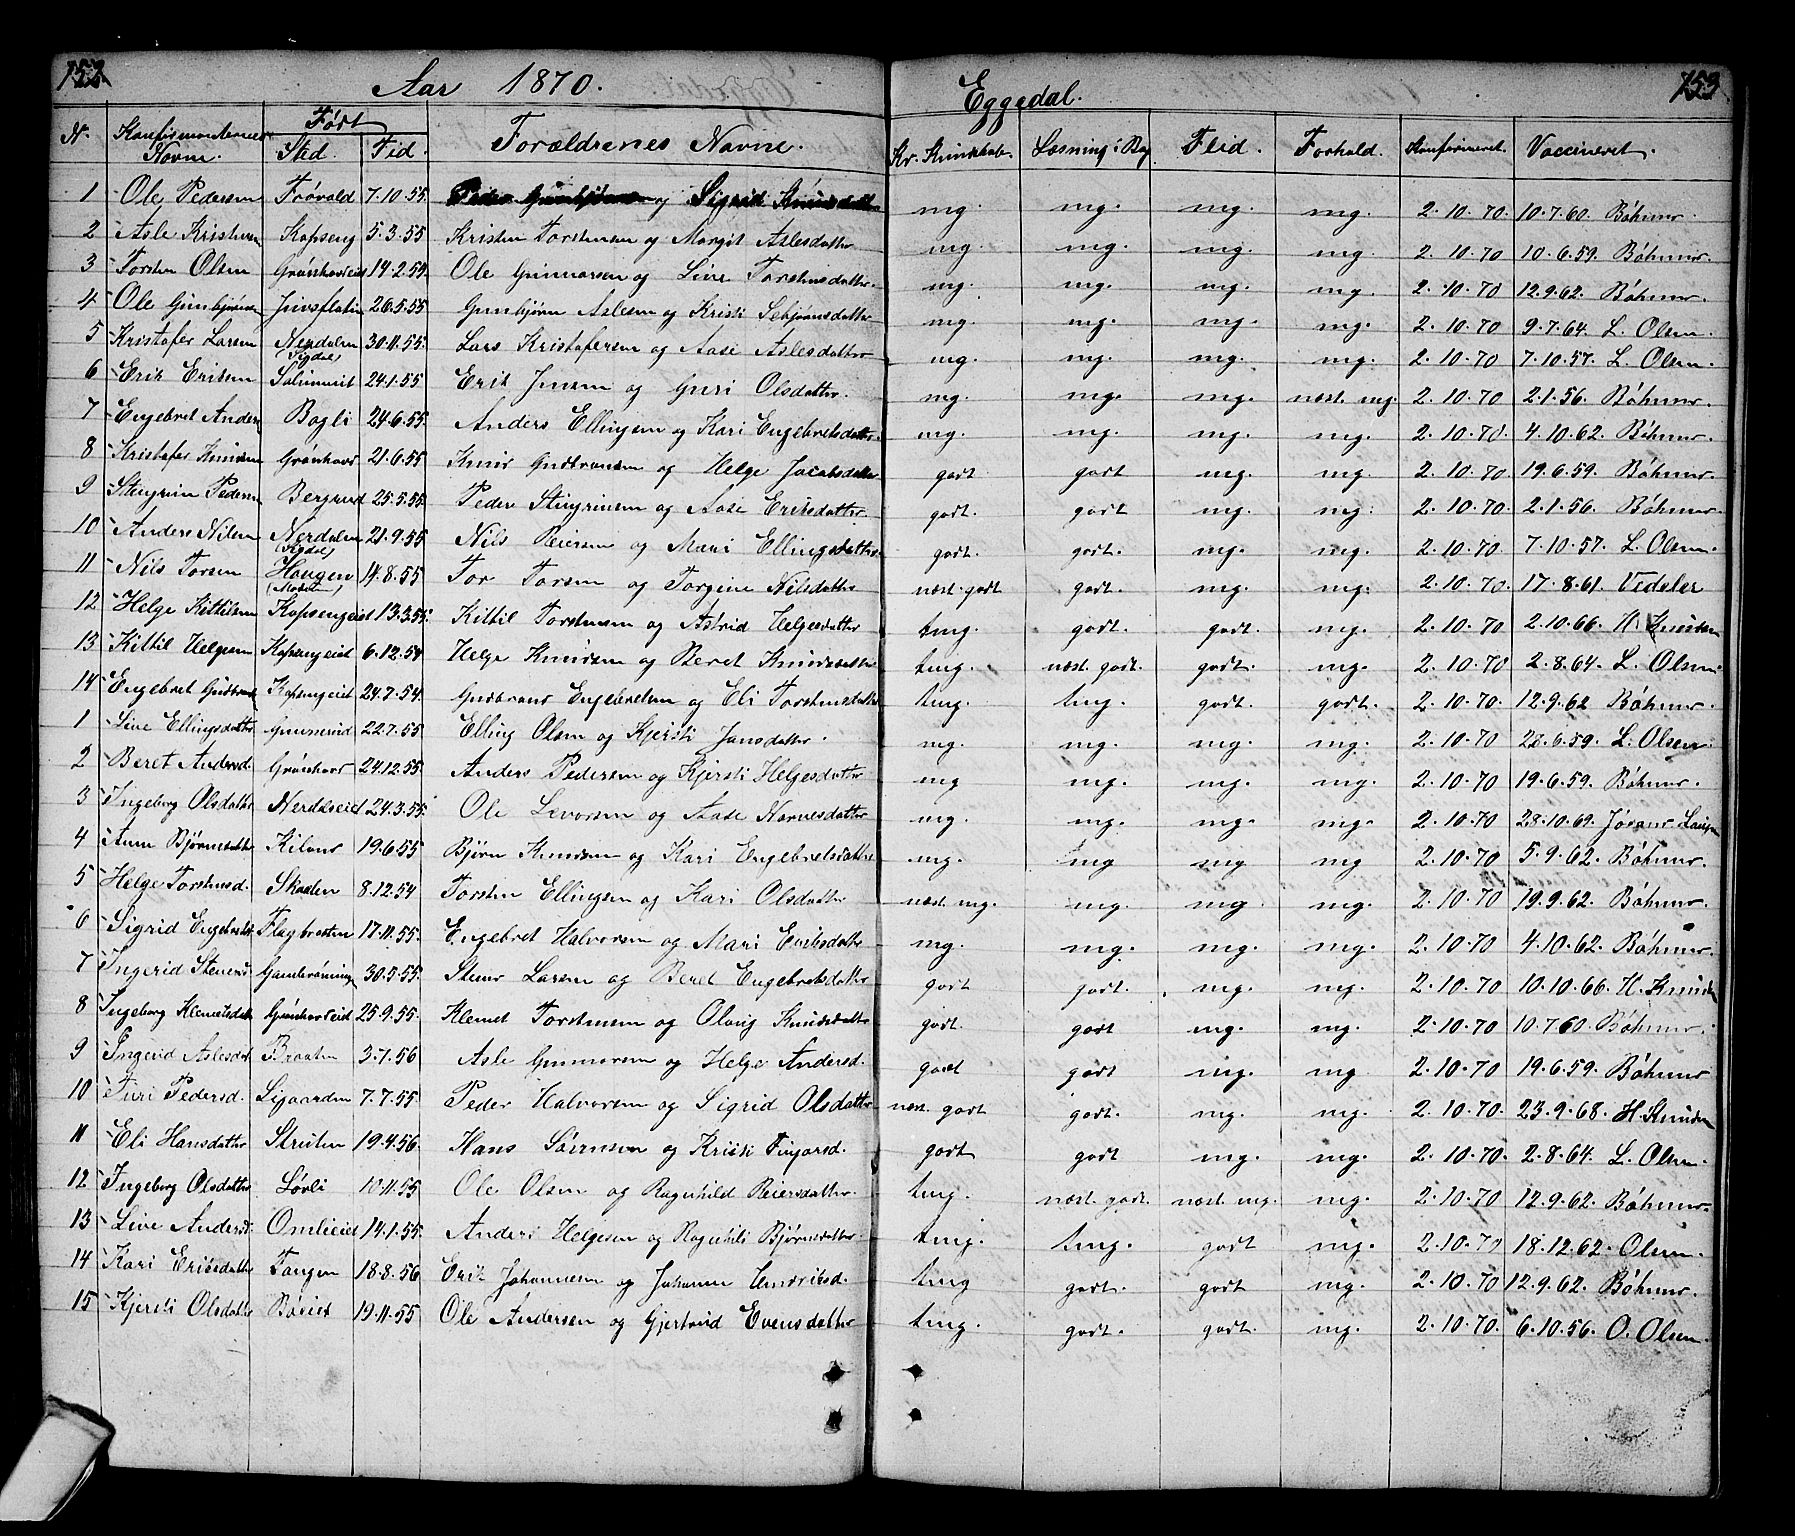 152. Aar 1870. Eggedal. 153
N. Konfirmanternes Navne. Født Sted. Tid. Forældrenes Navne. Kr. Kundskab. Læsning i Bog Flid. Forhold. Konfirmeret. Vaccineret.
1 Ole Pedersen Frøvold 7.10.55. Peder og Sigrid Knudsdatter mg. mg. mg. mg. 2.10.70 10.7.60. Böhmer.
2 Asle Kristensen Kopseng 5.3.55 Kristen Torstensen og Margit Aslesdatter mg. mg. mg. mg. 2.10.70 10.6.59. Böhmer.
3 Torsten Olsen Grønhovdeid 14.2.55. Ole Gunnarsen og Live Torstensdatter. mg. mg. mg. mg. 2.10.70 12.9.62. Böhmer.
4 Ole Gunbjørnsen 26.5.55 Gunbjørn Aslesen og Kristi Sebjørnsdatter mg. mg. mg. mg. 2.10.70 9.7.64. L. Olsen.
5 Kristofer Larsen Nerdalen (Sigdal) 30.11.55. Lars Kristofersen og Aase Aslesdatter mg. mg. mg. mg. 2.10.70 7.10.57. L. Olsen.
6 Erik Eriksen 24.1.55 Erik Jensen og Guri Olsdatter. mg. mg. mg. næst. mg. 2.10.70 2.1.56. Böhmer.
7 Engebret Anders Bagli 24.6.55. Anders Ellingsen og Kari Engebretsdatter. mg. mg. mg. mg. 2.10.70. 4.10.62. Böhmer.
8 Kristofer Knudsen Grønhovd 21.6.55 Knud Gudbransen og Helge Jacobsdatter godt godt mg. mg 2.10.70. 19.6.59. Böhmer.
9 Stengrim Pedersen Bergerud 25.5.55. Peder Stengrimsen og Aase Eriksdatter. godt. godt mg. mg. 2.10.70 2.1.56. Böhmer.
10 Anders Nilsen Nerdalen (Sigdal) 21.9.55 Nils Reiersen og Mari Ellingsdatter godt. godt. mg. mg. 2.10.70. 7.10.57. L. Olsen.
11 Nils Torsen Haugen (Modum) 14.8.55 Tor Torsen og Torgine Nilsdatter næst. godt godt. mg. mg. 2.10.70. 17.8.61. Vedeler
12 Helge Kittilsen Kopsengeid 13.3.55. Kittil Torstensen og Astrid Helgesdatter tmg. godt. godt. mg. 2.10.70 2.10.66. H. Knudsen
13 Kittil Helgesen Kopsengeid 6.12.54 Helge Knudsen og Beret Knudsdatter tmg. næst. godt. godt. mg. 2.10.70 2.8.64. L. Olsen.
14 Engebret Gudbrands Kopsengeid 24.7.54. Gudbrand Engebretsen og Eli Torstensdatter tmg. tmg. godt. godt. 2.10.70. 12.9.62 Böhmer.
1 Live Ellingsdatter 22.7.55 Elling Olsen og Kjersti Jensdatter. mg. mg. mg. mg. 2.10.70 28.6.59. L. Olsen.
2 Beret Andersd. Grønhovd 24.12.55. Anders Pedersen og Kjersti Helgesdatter mg mg. mg. mg. 2.10.70. 19.6.59. Böhmer.
3 Ingeborg Olsdatter Nerdalseid 24.3.55. Ole Levorsen og Aase Narvesdatter mg. mg. mg. mg. 2.10.70 28.10.69.
4 Anne Bjørnsdatter Kiland 19.6.55 Bjørn Knudsen og Kari Engebretsdatter mg. mg mg mg 2.10.70. 5.9.62. Böhmer.
5 Helge Torstensd. Skaalen 8.12.54 Torsten Ellingsen og Kari Olsdatter næst. mg. mg. mg mg. 2.10.70 19.9.62. Böhmer.
6 Sigrid Engebretsd. Flagbraaten 17.11.55. Engebret Halvorsen og Mari Eriksdatter mg. mg. mg. mg. 2.10.70 4.10.62. Böhmer.
7 Ingerid Stenersd. 30.5.55. Stener Larsen og Beret Engebretsdatter godt godt. mg. mg. 2.10.70 10.10.66. H. Knudsen
8 Ingeborg Klemetsdatter Grønhovdeid 25.9.55. Klemet Torstensen og Olaug Knudsdatter godt. godt mg. mg. 2.10.70 10.7.60. Böhmer.
9 Ingerid Aslesdat. Braaten 3.1.56 Asle Gunnarsen og Helge Andersd. godt godt mg. mg 2.10.70. 19.6.59. Böhmer
10 Turi Pedersd. 7.7.55 Peder Halvorsen og Sigrid Olsdatter næst. godt godt. mg. mg. 2.10.70. 23.9.68. H. Knudsen
11 Eli Hansdatter Struten 19.4.56 Hans Sørensen og Kristi Fingarsd. godt godt mg. mg. 2.10.70. 2.8.64. L. Olsen.
12 Ingeborg Olsdatter Løvli 10.11.55 Ole Olsen og Ragnhild Reiersdatter. tmg. næst. godt. næst. mg. mg. 2.10.70 12.9.62. Böhmer.
13 Live Andersd. Omlieid 14.1.55. Anders Helgesen og Ragnhild Bjørnsdatter. tmg. tmg. godt mg. 2.10.70 18.12.62. Olsen.
14 Kari Eriksdatter Tangen 18.8.56 Erik Johannesen og Johanne Hendriksd. tmg godt godt mg. 2.10.70 12.9.62. Böhmer.
15 Kjersti Olsdatter 19.11.55 Ole Andersen og Gjertrud Evensdatter tmg. godt. godt. mg. 2.10.70. 6.10.56. O. Olsen.